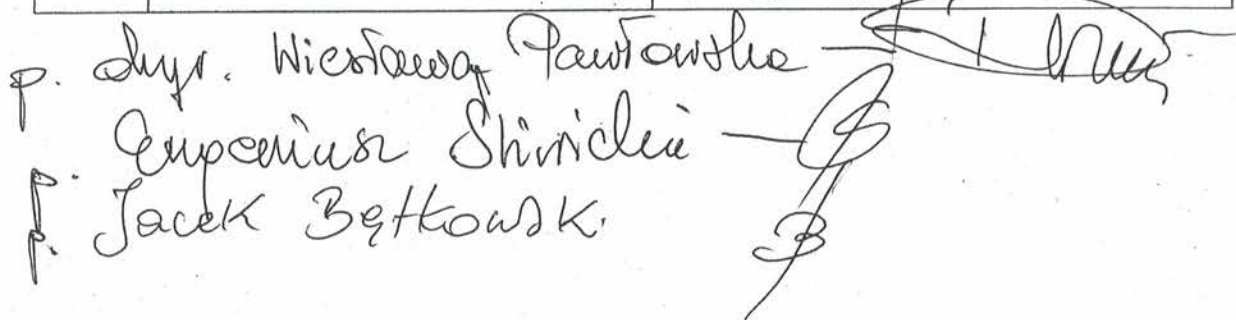 p. dyr. Wiesława Pawłowska —
p. Eugeniusz Śliwicki —
p. Jacek Bętkowski